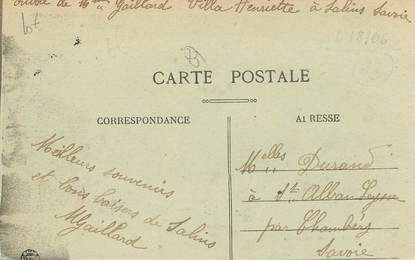 de Mme Gaillard Villa Henriette à Salins Savoie
CARTE POSTALE
CORRESPONDANCE
A1 RESSE
Meilleurs souvenirs
et bons baisers de Salins
MGaillard
Melles Durand
à St Alban Leysse
par Chambéry
Savoie